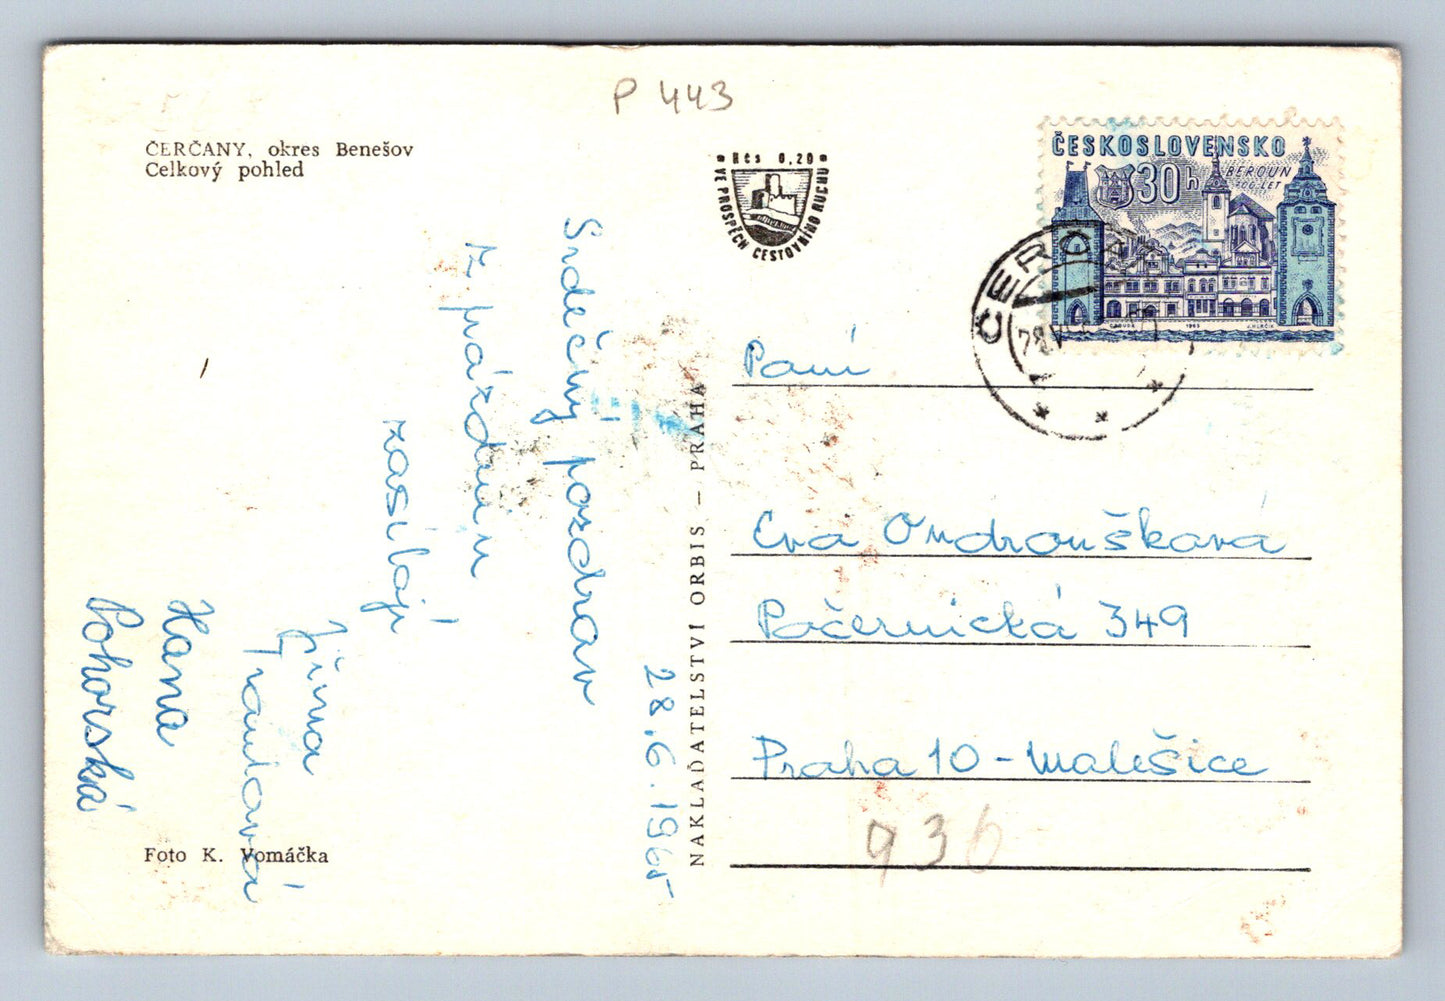 P 443
ČERČANY, okres Benešov
Celkový pohled
Kčs 0,20
VE PROSPĚCH CESTOVNÍHO RUCHU
ČESKOSLOVENSKO
30h
BEROUN
700 LET
1965
28.6.1965
Srdečný pozdrav
z prázdnin
zasílají
Jiřina
Hana
Pohorská
Foto K. Vomáčka
NAKLADATELSTVÍ ORBIS – PRAHA
Paní
Eva Ondroušková
Počernická 349
Praha 10 - Malešice
936